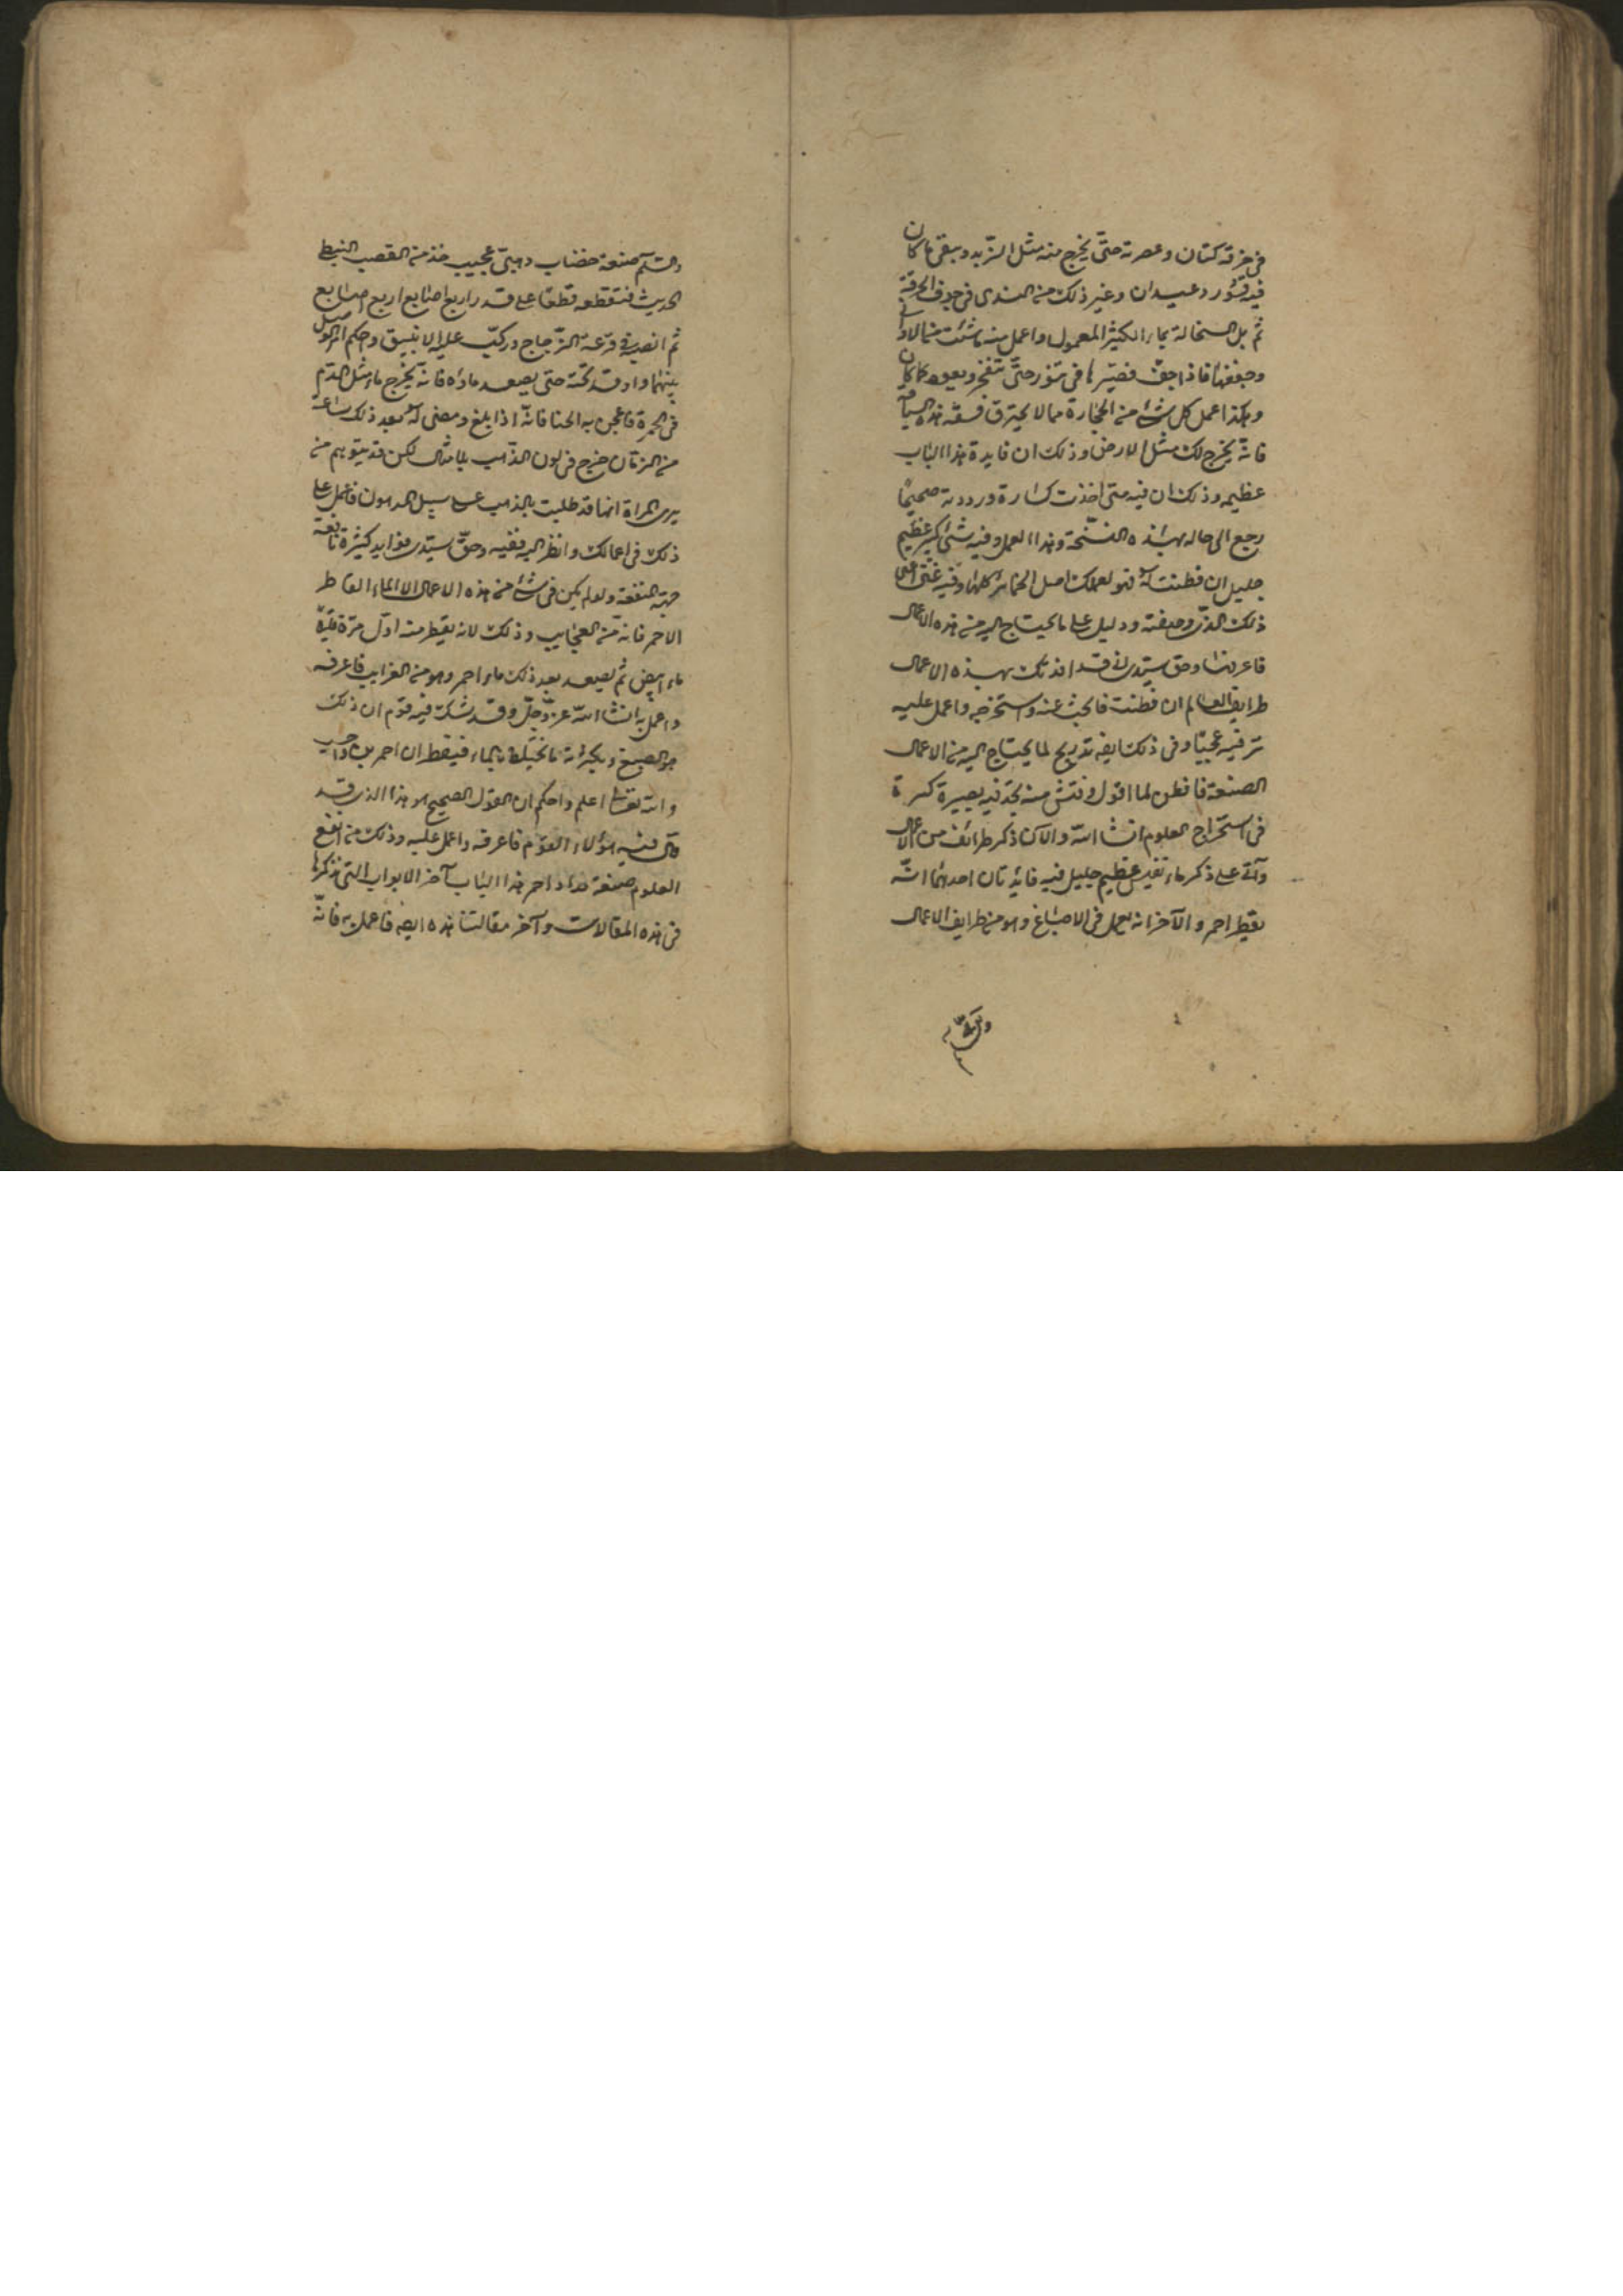 في خرقة كتان وعصرته حتى يخرج منه مثل الزبد ويبقى ما كان
فيه قشور وعيدان وغير ذلك من الندى في جوف الخرقة
ثم بل النخالة بماء الكثيرا المعمول واعمل منه ما شئت من الاواني
وجففها فاذا جف فصيرها في تنور حتى تنفخ ويعود كما كان
وهكذا اعمل كل شئ من الحجارة مما لا يحترق فسقه هذه السياقة
فانه يخرج لك مثل الارض وذلك ان فايدة هذا الباب
عظيمه وذلك ان فيه متى اخذت كسارة ورددته صحيحًا
رجع الى حاله بهذه النسخة وهذا العمل وفيه شئ كبير عظيم
جليل ان فطنت له فهو لعملك اصل الخمائر كلها وفيه غنى اعنى
ذلك الذر وصفته ودليل على ما يحتاج اليه من هذه الاعمال
فاعرفها وحق سيدي لقد افدتك بهذه الاعمال
طرايف العالم ان فطنت فابحث عنه واستخرجه واعمل عليه
تر فيه عجبًا وفي ذلك ايضه تدريج لما يحتاج اليه من الاعمال
الصنعة فافطن لما اقول وفتش منه تجد فيه بصيرة كبيرة
في استخراج العلوم انشا الله والا كنا ذكر طرائف من الاعمال
وآتى على ذكر ماء نفيس عظيم جليل فيه فايدتان احدهما انه
يقطر احمر والآخر انه يعمل في الاصباغ وهو من طرايف الاعمال
والسلم صنعة خضاب ذهبي عجيب خذ من القصب النبطي
الحديث فتقطعه قطعًا على قدر اربع اصابع اربع اصابع
ثم انصبه في قرعة الزجاج وركب عليه الانبيق واحكم الوصل
بينهما واوقد تحته حتى يصعد ماؤه فانه يخرج ماء مثل الدم
في الحمرة فاعجن به الحنا فانه اذا بلغ ومضى له بعد ذلك ساعة
من الزمان خرج في لون الذهب بلا مثال لكن قد يتوهم من
يرى المراة انها قد طليت بالذهب على سبيل المدهون فاعمل على
ذلك في اعمالك وانظر اليه ففيه وحق سيدي فوايد كثيرة نافعة
جهة المنفعة ولو لم يكن في شئ من هذه الاعمال الا الماء القاطر
الاحمر فانه من العجايب وذلك لانه يقطر منه اول مرة
ماء ابيض ثم يصعد بعد ذلك ماء احمر وهو من الغرايب فاعرفه
واعمل به انشا الله عز وجل وقد شك فيه قوم ان ذلك
هو الصبغ بالماء فيقطران احمرين
والله تعالى اعلم واحكم ان القول الصحيح هو هذا الذي قد
قال فيه هؤلاء القوم فاعرفه واعمل عليه وذلك من انفع
العلوم صنعة مداد احمر هذا الباب آخر الابواب التي نذكرها
في هذه المقالات وآخر مقالتنا هذه ايضه فاعمل به فانه